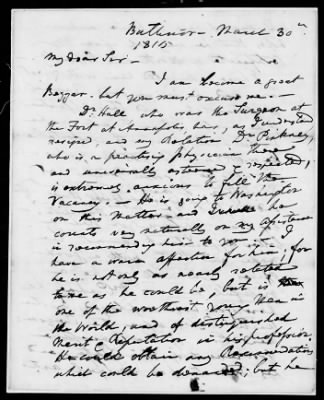 Baltimore - March 30th
1815
My dear Sir -
I am become a great
Beggar - but you must excuse me. -
Dr. Hall who was the Surgeon at
the Fort at Annapolis has, as I understand
resigned, and my Relation Dr. Pinkney,
who is a practising physician there
and universally esteemed & respected,
is extremely anxious to fill the
Vacancy. - He is going to Washington
on this Matter and he
counts very naturally on my assistance
in recommending him to you. - I
have a warm affection for him, for
he is not only as nearly related
to me as he could be, but is
one of the worthiest young Men in
the World, and of distinguished
Merit & Reputation in his profession.
He could obtain any Recommendation
which could be desired; but he